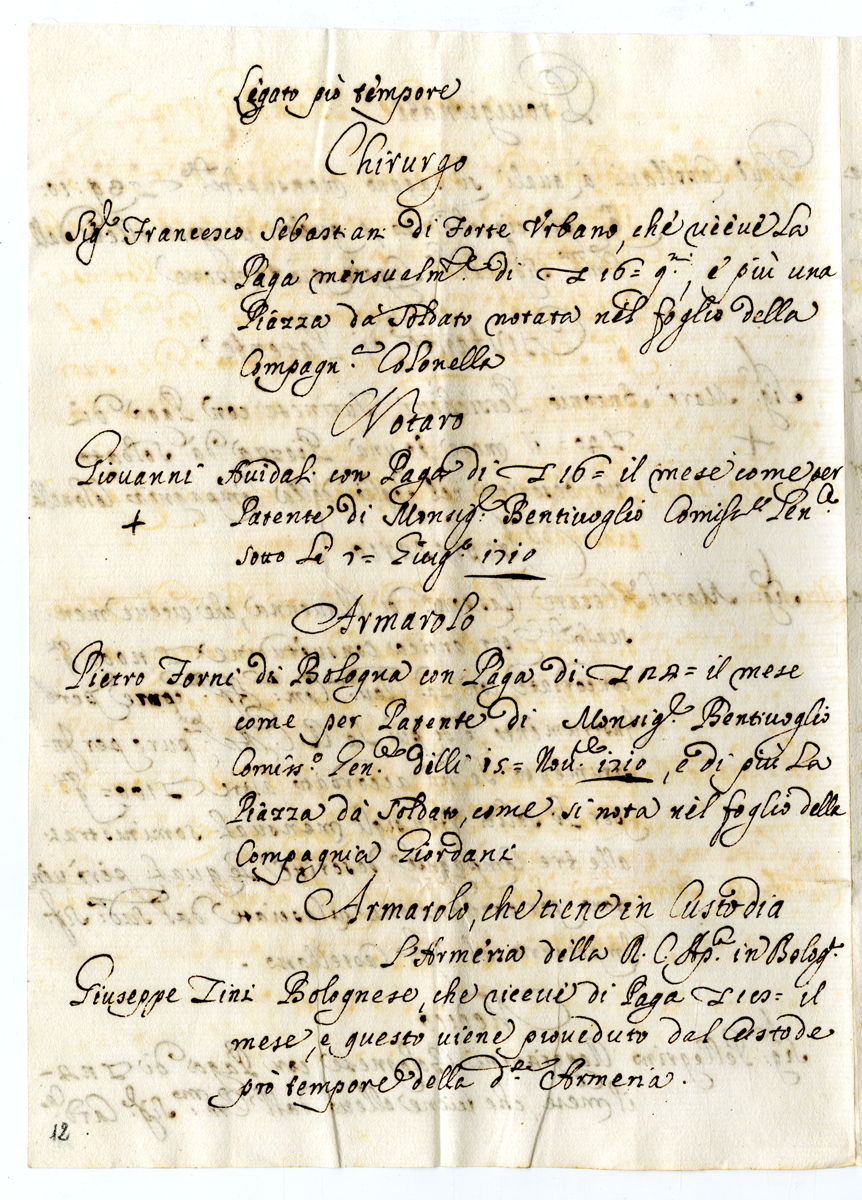 Legato prò tempore
Chirurgo
Sig.r Francesco Sebastiani di Forte Vrbano, che riceve La
Paga mensualm.te di 16= q.ni, e più una
Piazza da Soldato notata nel foglio della
Compagn.a Colonella
Notaro
Giovanni Auidali con Paga di 16= il mese come per
+ Patente di Monsig.r Bentivoglio Comiss.o Gen.e
sotto Li Giug.o 1710
Armarolo
Pietro Forni di Bologna con Paga di il mese
come per Patente di Monsig.r Bentivoglio
Comiss.o Gen.le delli 15= Nou.e 1710, e di più La
Piazza da Soldato, come si nota nel foglio della
Compagnia Giordani
Armarolo, che tiene in Custodia
L'Armeria della R. C. Ap.a in Bolog.a
Giuseppe Tini Bolognese, che riceve di Paga il
mese, e questo viene proveduto dal Custode
prò tempore della d.a Armeria.
12